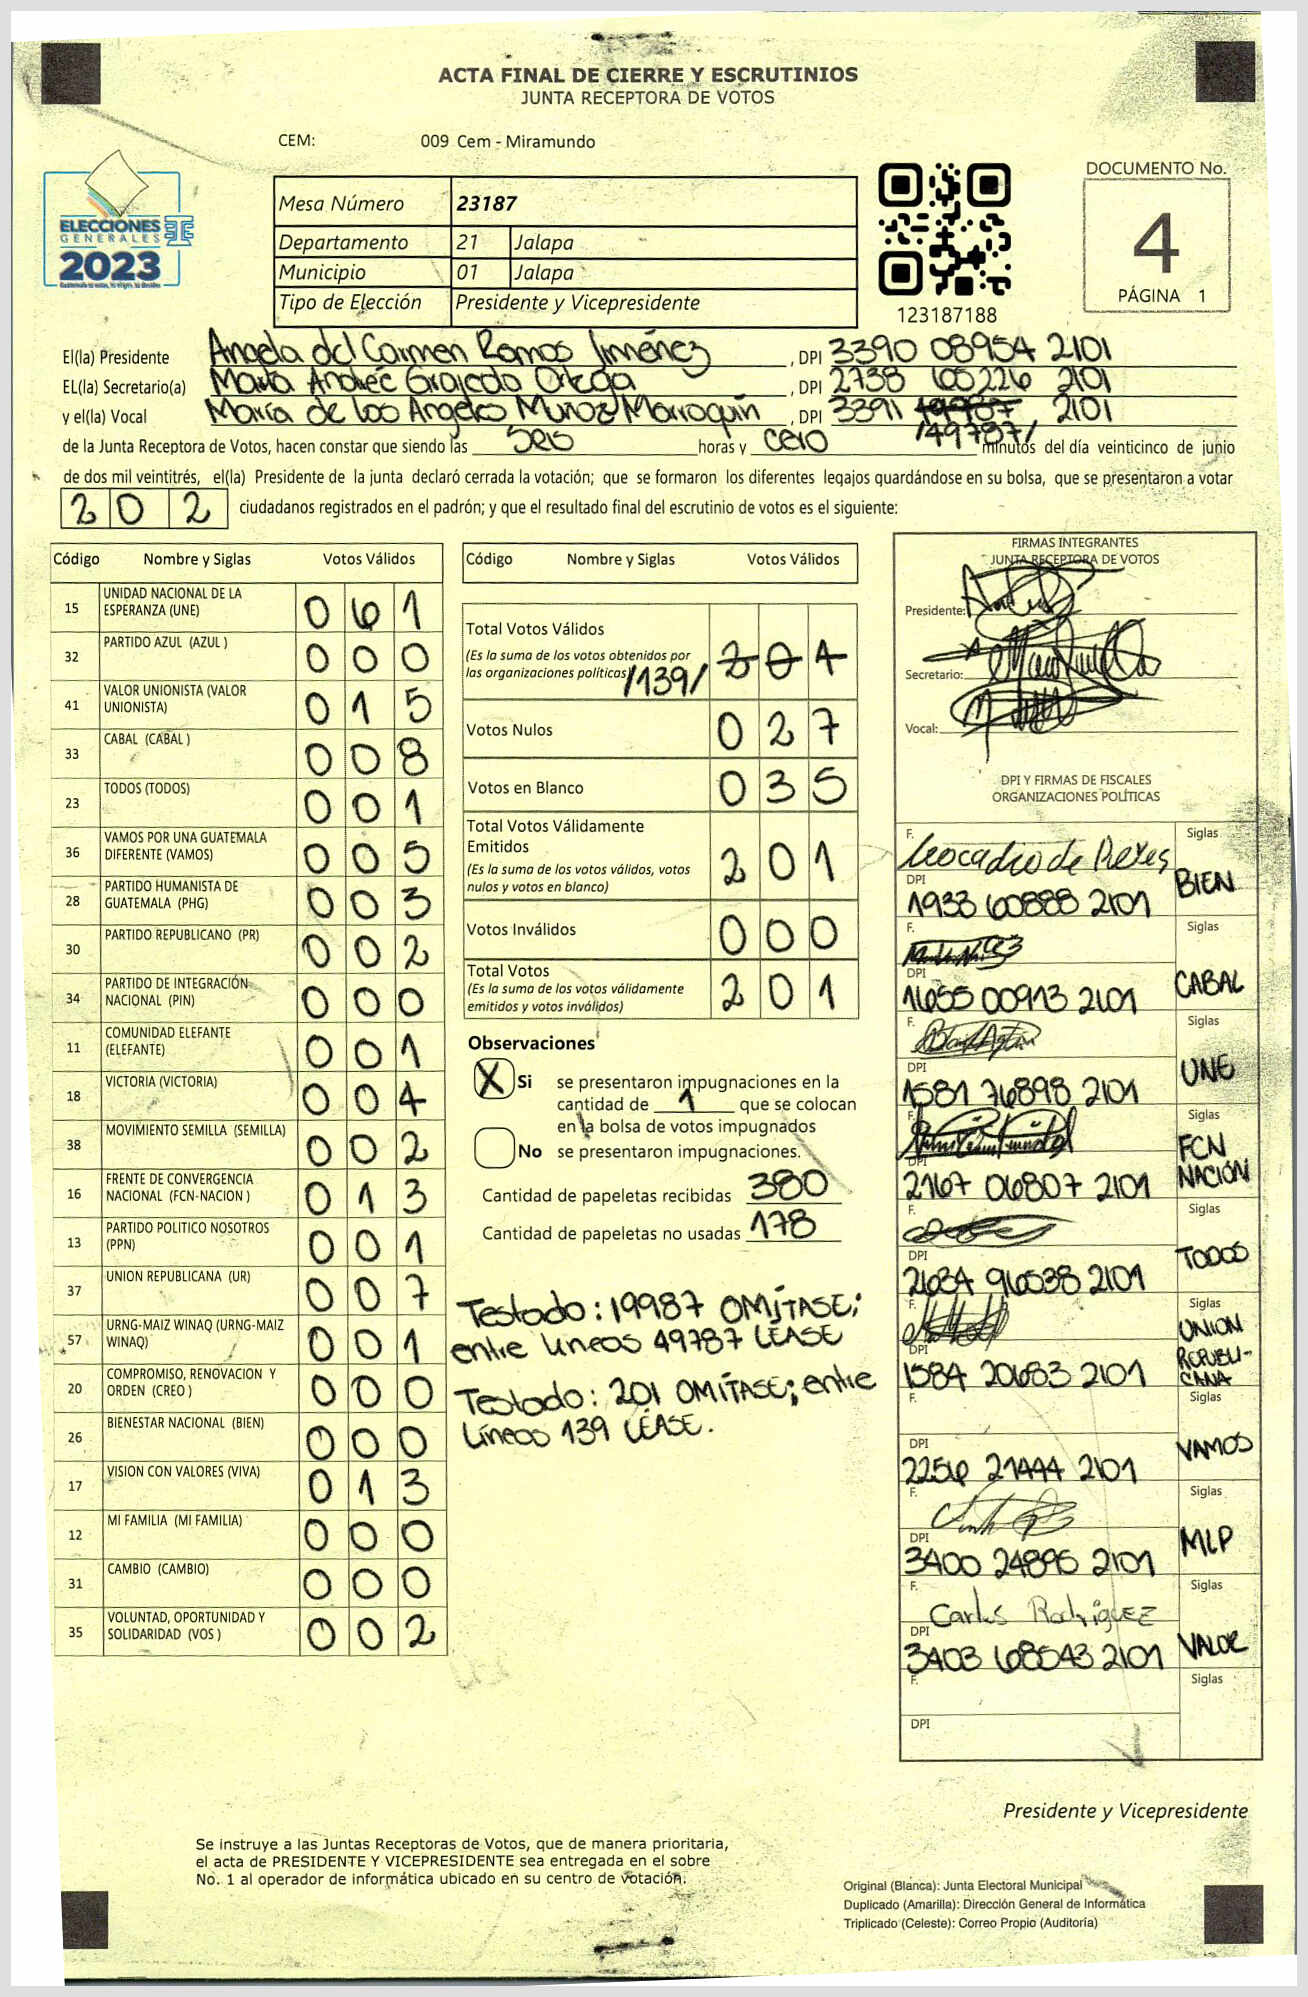 ACTA FINAL DE CIERRE Y ESCRUTINIOS
JUNTA RECEPTORA DE VOTOS
CEM: 009 Cem - Miramundo
ELECCIONES
GENERALES
2023
Mesa Número 23187
Departamento 21 Jalapa
Municipio 01 Jalapa
Tipo de Elección Presidente y Vicepresidente
123187188
DOCUMENTO No.
4
PÁGINA 1
El(la) Presidente Angela del Carmen Ramos Jiménez, DPI 3390 08954 2101
EL(la) Secretario(a) Marta Andreé Grajeda Ortega, DPI 2738 60226 2101
y el(la) Vocal María de los Angeles Muñoz Marroquín, DPI 3391 19987 2101
/49787/
de la Junta Receptora de Votos, hacen constar que siendo las seis horas y cero minutos del día veinticinco de junio
de dos mil veintitrés, el(la) Presidente de la junta declaró cerrada la votación; que se formaron los diferentes legajos guardándose en su bolsa, que se presentaron a votar
202 ciudadanos registrados en el padrón; y que el resultado final del escrutinio de votos es el siguiente:
Código Nombre y Siglas Votos Válidos
15 UNIDAD NACIONAL DE LA ESPERANZA (UNE) 0 6 1
32 PARTIDO AZUL (AZUL ) 0 0 0
41 VALOR UNIONISTA (VALOR UNIONISTA) 0 1 5
33 CABAL (CABAL ) 0 0 8
23 TODOS (TODOS) 0 0 1
36 VAMOS POR UNA GUATEMALA DIFERENTE (VAMOS) 0 0 5
28 PARTIDO HUMANISTA DE GUATEMALA (PHG) 0 0 3
30 PARTIDO REPUBLICANO (PR) 0 0 2
34 PARTIDO DE INTEGRACIÓN NACIONAL (PIN) 0 0 0
11 COMUNIDAD ELEFANTE (ELEFANTE) 0 0 1
18 VICTORIA (VICTORIA) 0 0 4
38 MOVIMIENTO SEMILLA (SEMILLA) 0 0 2
16 FRENTE DE CONVERGENCIA NACIONAL (FCN-NACION ) 0 1 3
13 PARTIDO POLITICO NOSOTROS (PPN) 0 0 1
37 UNION REPUBLICANA (UR) 0 0 7
57 URNG-MAIZ WINAQ (URNG-MAIZ WINAQ) 0 0 1
20 COMPROMISO, RENOVACION Y ORDEN (CREO ) 0 0 0
26 BIENESTAR NACIONAL (BIEN) 0 0 0
17 VISION CON VALORES (VIVA) 0 1 3
12 MI FAMILIA (MI FAMILIA) 0 0 0
31 CAMBIO (CAMBIO) 0 0 0
35 VOLUNTAD, OPORTUNIDAD Y SOLIDARIDAD (VOS ) 0 0 2
Código Nombre y Siglas Votos Válidos
Total Votos Válidos
(Es la suma de los votos obtenidos por
las organizaciones políticas) /139/
Votos Nulos 0 2 7
Votos en Blanco 0 3 5
Total Votos Válidamente
Emitidos 2 0 1
(Es la suma de los votos válidos, votos
nulos y votos en blanco)
Votos Inválidos 0 0 0
Total Votos 2 0 1
(Es la suma de los votos válidamente
emitidos y votos inválidos)
Observaciones
X Si se presentaron impugnaciones en la
cantidad de 1 que se colocan
en la bolsa de votos impugnados
No se presentaron impugnaciones.
Cantidad de papeletas recibidas 380
Cantidad de papeletas no usadas 178
Testado: 19987 OMÍTASE;
entre lineas 49787 LÉASE
Testado: 201 OMÍTASE; entre
Líneas 139 LÉASE.
FIRMAS INTEGRANTES
JUNTA RECEPTORA DE VOTOS
Presidente:
Secretario:
Vocal:
DPI Y FIRMAS DE FISCALES
ORGANIZACIONES POLÍTICAS
F. Leocadio de Reyes Siglas
DPI 1933 60888 2101 BIEN
F. Siglas
DPI 1655 00913 2101 CABAL
F. Siglas
DPI 1581 76898 2101 UNE
F. Siglas
DPI 2167 06807 2101 FCN NACIÓN
F. Siglas
DPI 2634 96538 2101 TODOS
F. Siglas
DPI 1584 20683 2101 UNION REPUBLI-CANA
F. Siglas
DPI 2256 21444 2101 VAMOS
F. Siglas
DPI 3400 24895 2101 MLP
F. Carlos Rodriguez Siglas
DPI 3403 68543 2101 VALOR
F. Siglas
DPI
Presidente y Vicepresidente
Se instruye a las Juntas Receptoras de Votos, que de manera prioritaria,
el acta de PRESIDENTE Y VICEPRESIDENTE sea entregada en el sobre
No. 1 al operador de informática ubicado en su centro de votación.
Original (Blanca): Junta Electoral Municipal
Duplicado (Amarilla): Dirección General de Informática
Triplicado (Celeste): Correo Propio (Auditoría)